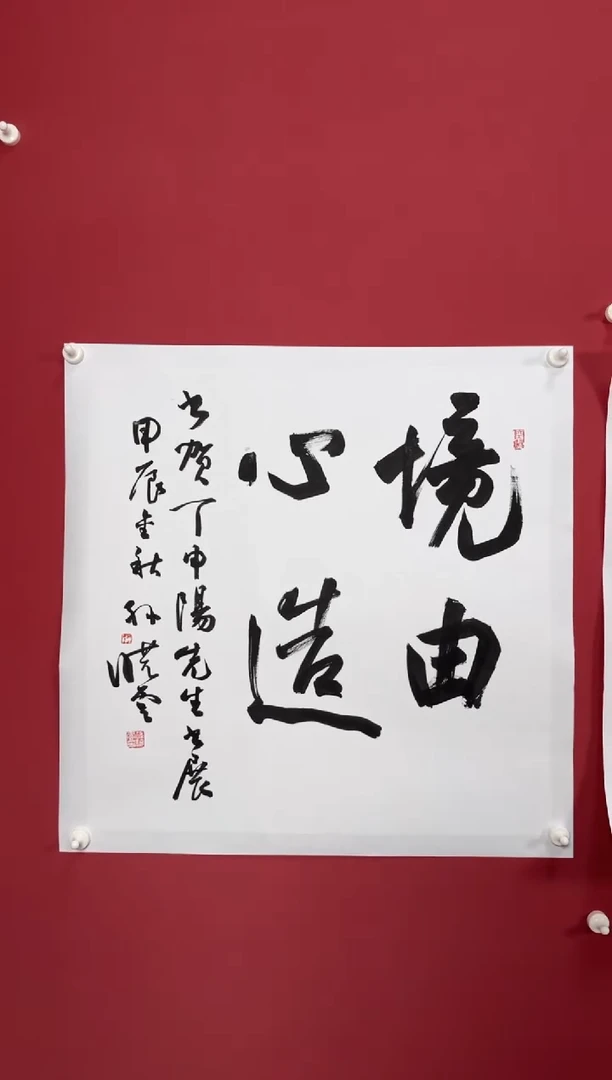 境由
心造
书贺丁申阳先生书展
甲辰金秋 孙晓云